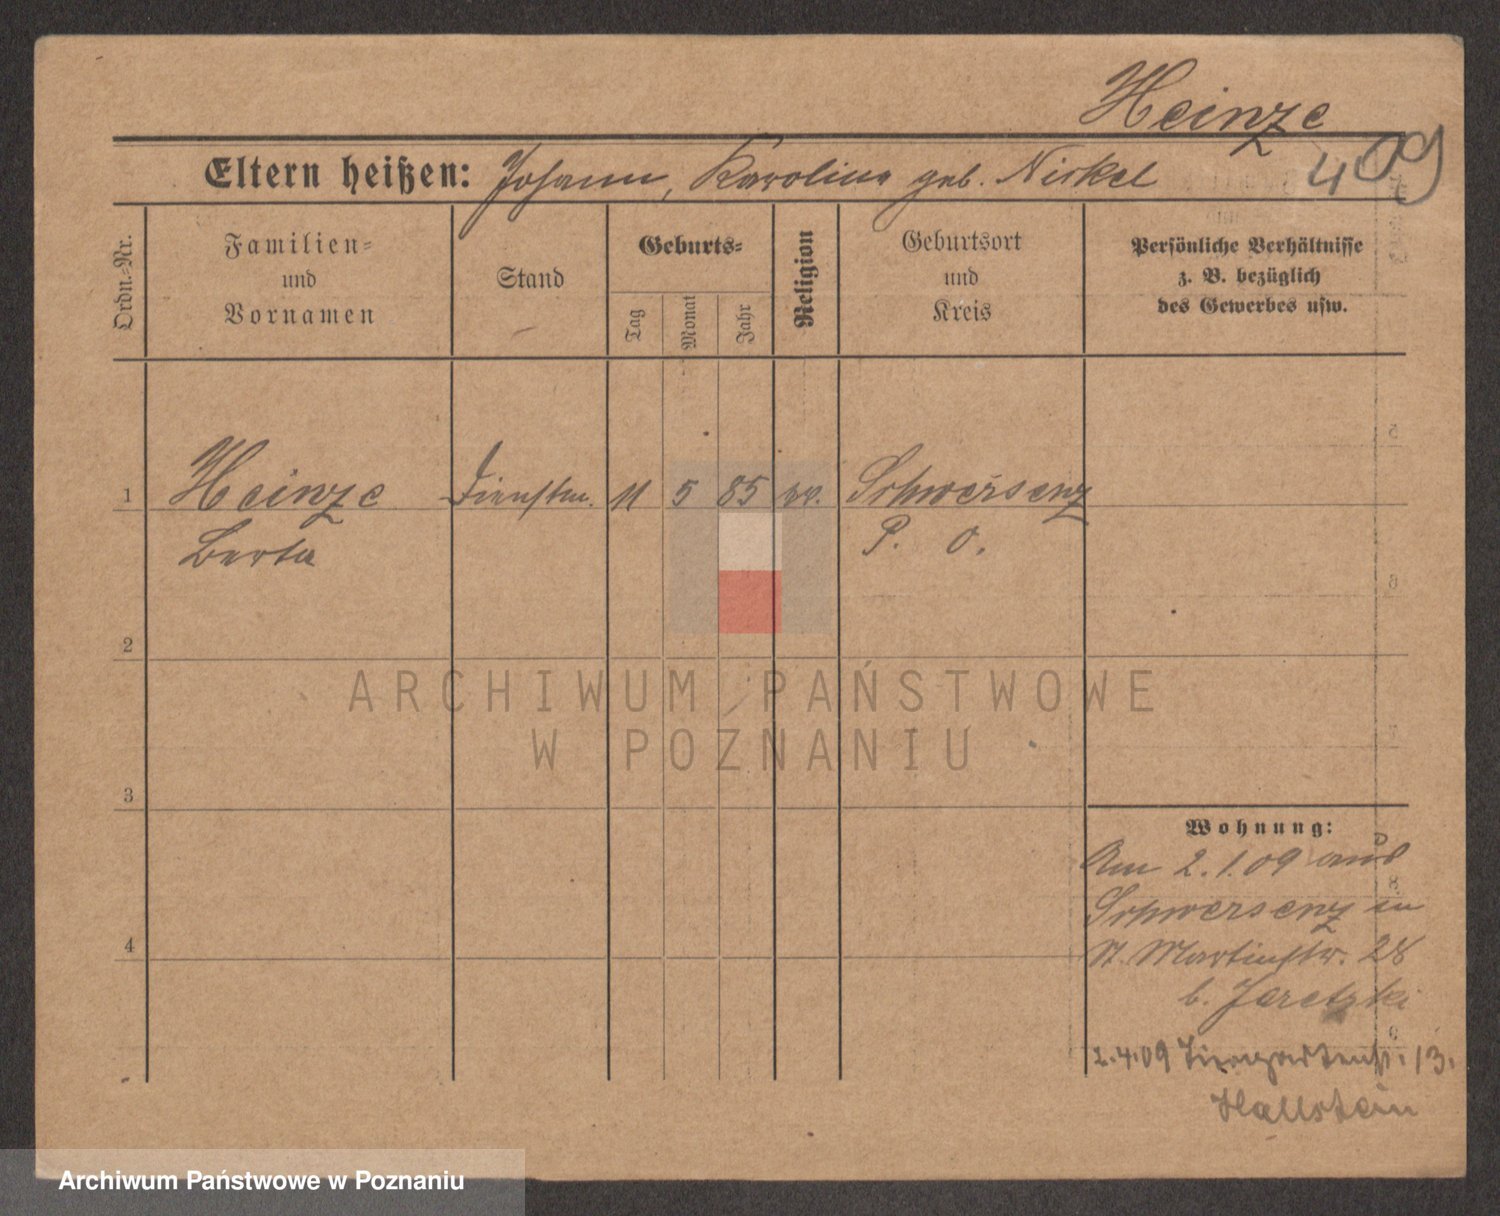 Heinze
409
Eltern heißen: Johann, Karoline geb. Nickel
Ordn.-Nr.
Familien-
und
Vornamen
Stand
Geburts-
Tag
Monat
Jahr
Religion
Geburtsort
und
Kreis
Persönliche Verhältnisse
z. B. bezüglich
des Gewerbes usw.
1 Heinze Dienstm. 11 5 85 ev. Schwersenz
Berta P. O.
2
3
4
Wohnung:
Am 2.1.09 aus
Schwersenz in
St. Martinstr. 28
b. Jaretzki
2.4.09 Tiergartenstr. 13.
Hallstein
ARCHIWUM PAŃSTWOWE
W POZNANIU
Archiwum Państwowe w Poznaniu